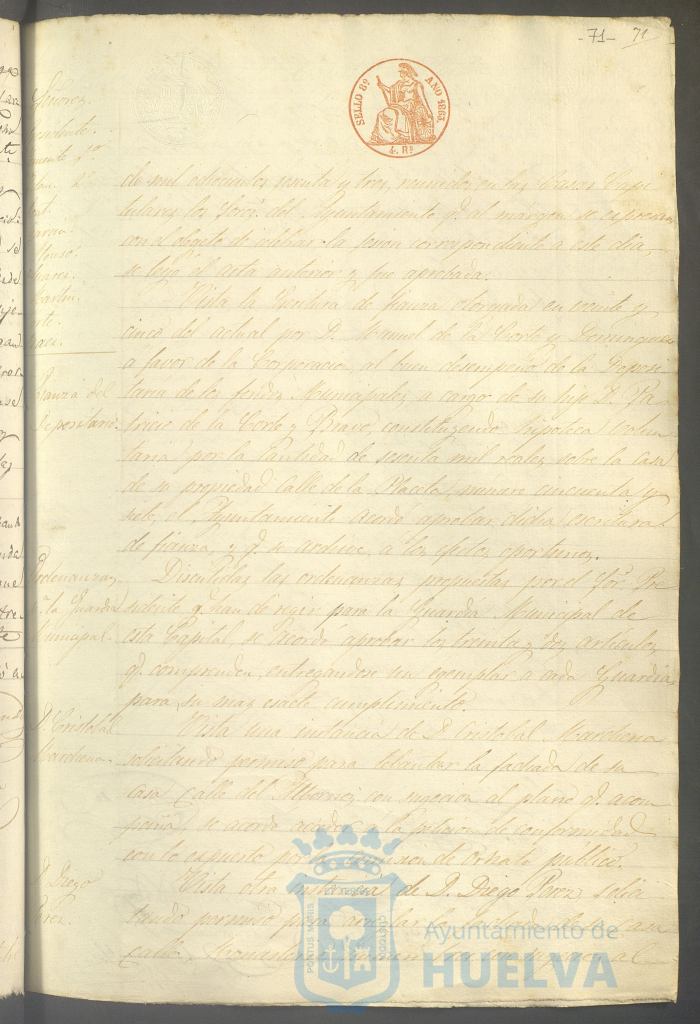 -71- 71
SELLO 8º AÑO 1863.
4. Rs
Señores
de mil ochocientos sesenta y tres, reunidos en las Casas Capi-
tulares los Sores. del Ayuntamiento q. al margen se espresan
con el objeto de celebrar la sesion correspondiente a este dia,
se leyó el acta anterior y fue aprobada.
Fianza del
Depositario.
Vista la Escritura de fianza otorgada en veinte y
cinco del actual por D. Manuel de la Corte y Dominguez
a favor de la Corporacion, al buen desempeño de la Deposi-
taria de los fondos Municipales, a cargo de su hijo D. Pa-
tricio de la Corte y Bravo, constituyendo hipoteca volun-
taria por la Cantidad de sesenta mil reales sobre la casa
de su propiedad Calle de la Placeta, numero cincuenta y
siete, el Ayuntamiento acordó aprobar dicha escritura
de fianza, y q. se archive, a los efectos oportunos.
Ordenanzas
pª la Guardia
Municipal.
Discutidas las ordenanzas propuestas por el Sor. Pre-
sidente q. han de regir para la Guardia Municipal de
esta Capital, se acordó aprobar los treinta y dos articulos
q. comprenden, entregandose un ejemplar a cada Guardia
para su mas esacto cumplimiento.
D. Cristobal
Marchena.
Vista una instancia de D. Cristobal Marchena
solicitando permiso para lebantar la fachada de su
casa calle del con sugecion al plano q. acom-
paña, se acordó acceder a la peticion de conformidad
con lo espuesto por la comision de ornato publico.
D. Diego
Perez.
Vista otra instancia de D. Diego Perez, solici-
tando permiso para la de su casa
calle numero al
PORTUS MARIS
CUSTODIA
Ayuntamiento de
HUELVA